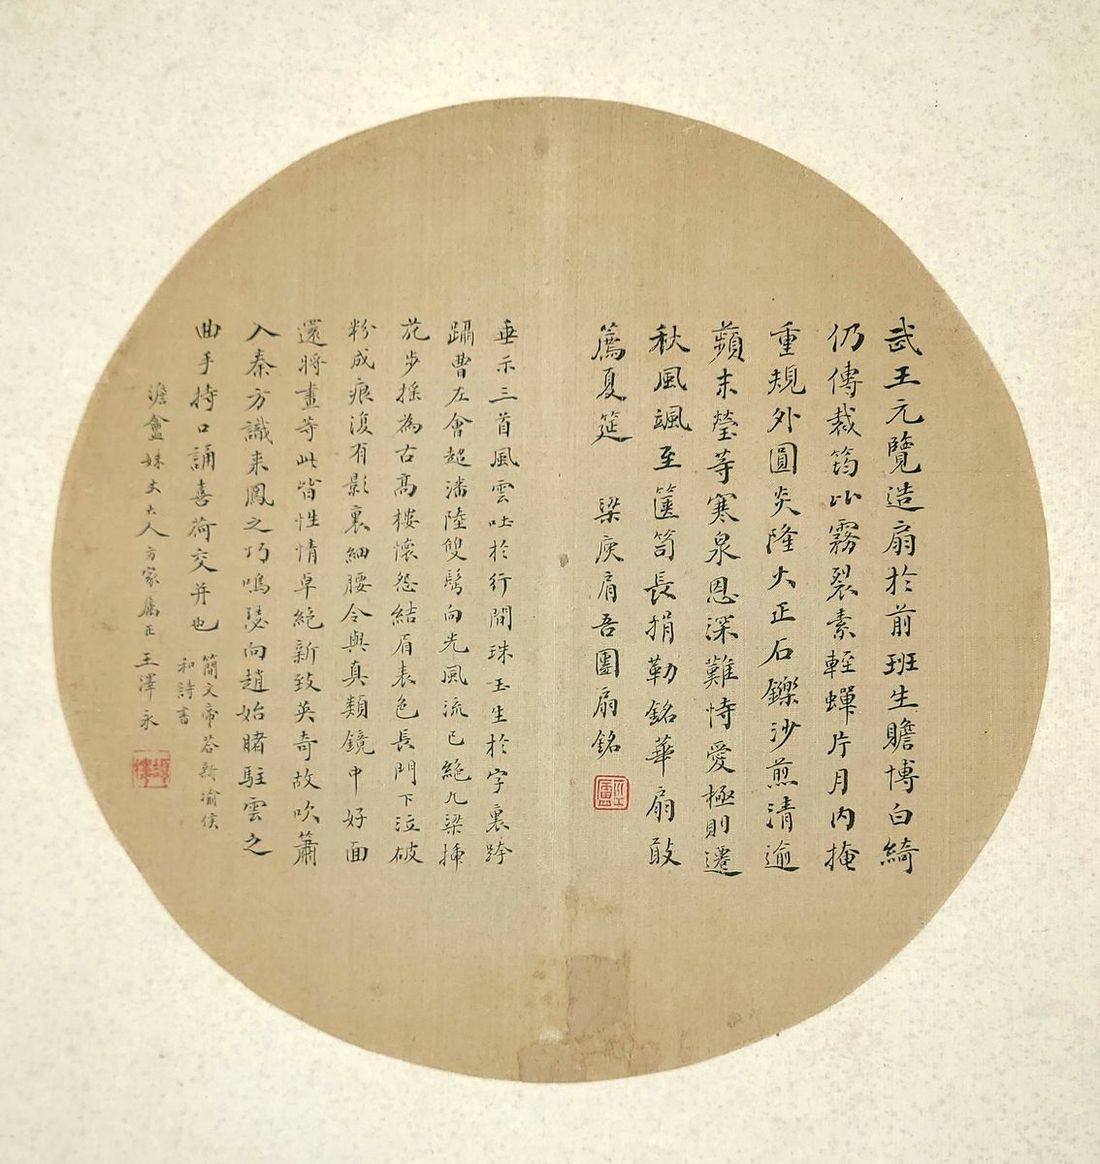 武王元覽造扇於前班生贍博白綺
仍傳裁筠比霧裂素輕蟬片月內掩
重規外圓炎隆火正石鑠沙煎清逾
蘋末瑩等寒泉恩深難恃愛極則遷
秋風颯至篋笥長捐勒銘華扇敢
薦夏筵 梁庾肩吾團扇銘
垂示三首風雲吐於行間珠玉生於字裏跨
躡曹左會超潘陸雙鬢向光風流已絕九梁插
花步搖為古高樓懷怨結眉表色長門下泣破
粉成痕復有影裏細腰令與真類鏡中好面
還將畫等此皆性情卓絕新致英奇故吹簫
入秦方識来鳳之巧鳴瑟向趙始睹駐雲之
曲手持口誦喜荷交并也
簡文帝荅新渝侯
和詩書
澹盦姝丈大人方家属正 王澤永